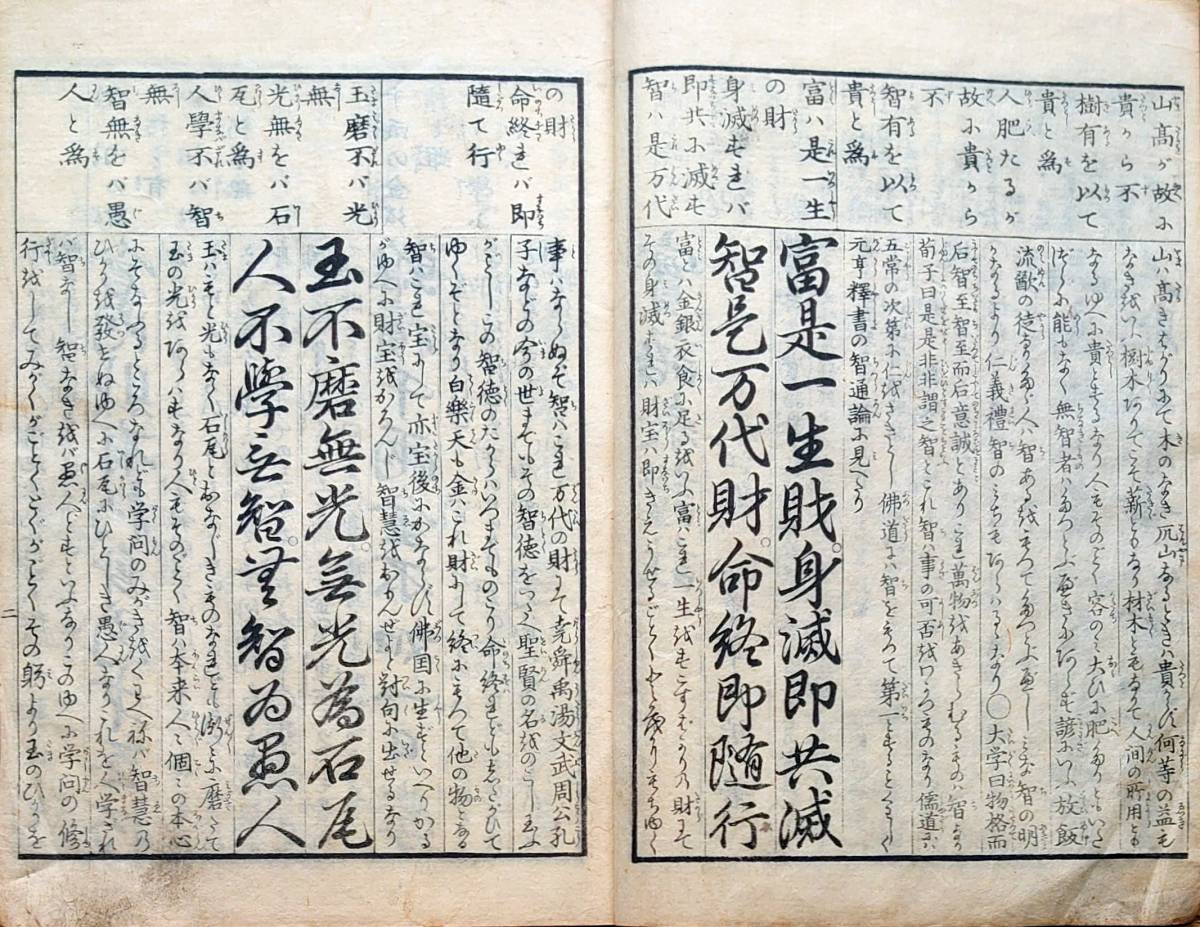 山高が故に
貴から不
樹有を以て
貴と為
人肥たるが
故に貴から
不
智有を以て
貴と為
富ハ是一生
の財
身滅すれバ
即共に滅す
智ハ是万代
山ハ高きばかりにて木のなき兀山なるときハ貴からず何等の益も
なき 樹木ありてこそ薪ともなり材木ともなりて人间の所用とも
なるゆへに貴とするなり人もそのごとく容のミ大ひに肥たりともいさ
能もなく無智者ハたつとぶべきにあらず諺にいふ放飯
流歠の徒なるべし人ハ智あるをもつてたつとぶべしミな智の明
かなるより仁義禮智のミちもあらハるゝなり〇大学曰物格而
后智至智至而后意誠とありこれ萬物をあきらむるものハ智なり
荀子曰是是非非謂之智とこれ智ハ事の可否をわかつものなり儒道にハ
五常の次第に仁をさきとし佛道にハ智をもつて第一とするとくハしく
元亨釋書の智通論に見へたり
富是一生財。身滅即共滅
智是万代財。命終即隨行
富とハ金銀衣食に足るをいふ富ハこれ一生をすごすばかりの財にて
その身滅すれハ財宝ハ即きえうせるごとくになりてもちゆく
の財
命終れバ即
隨て行
玉磨不バ光
無
光無をバ石
瓦と為
人學不バ智
無
智無をバ愚
人と為
事ハならぬぞ智ハこれ万代の財にて尭舜禹湯文武周公孔
子などの今の世までもその智徳をつたへ聖賢の名をのこし玉ふ
がごとしこの智徳のたからハいつまでものこり命終るともしたがひて
ゆくぞとなり白樂天も金ハこれ財にして終にもつて他の物となる
智ハこれ宝にて亦宝後にかならず佛国に生ずといへりかる
がゆへに財宝をかろんじ智慧をおもんぜよと対句に出せるなり
玉不磨無光。無光為石瓦
人不學無智。無智為愚人
玉ハもと光もなく石瓦とおなじきものなれども 磨たて
玉の光をあらハすなり人もそのごとく智ハ本来人々個々の本心
にそなふるところなれども学问のみがきをくハへねバ智慧の
ひかり發せぬゆへに石瓦にひとしき愚人なりこれを人学ざれ
バ智なし智なきをバ愚人とすといふなりこのゆへに学问の修
行をしてみがくがごとくとぐがごとくその躬より玉のひかりを
二